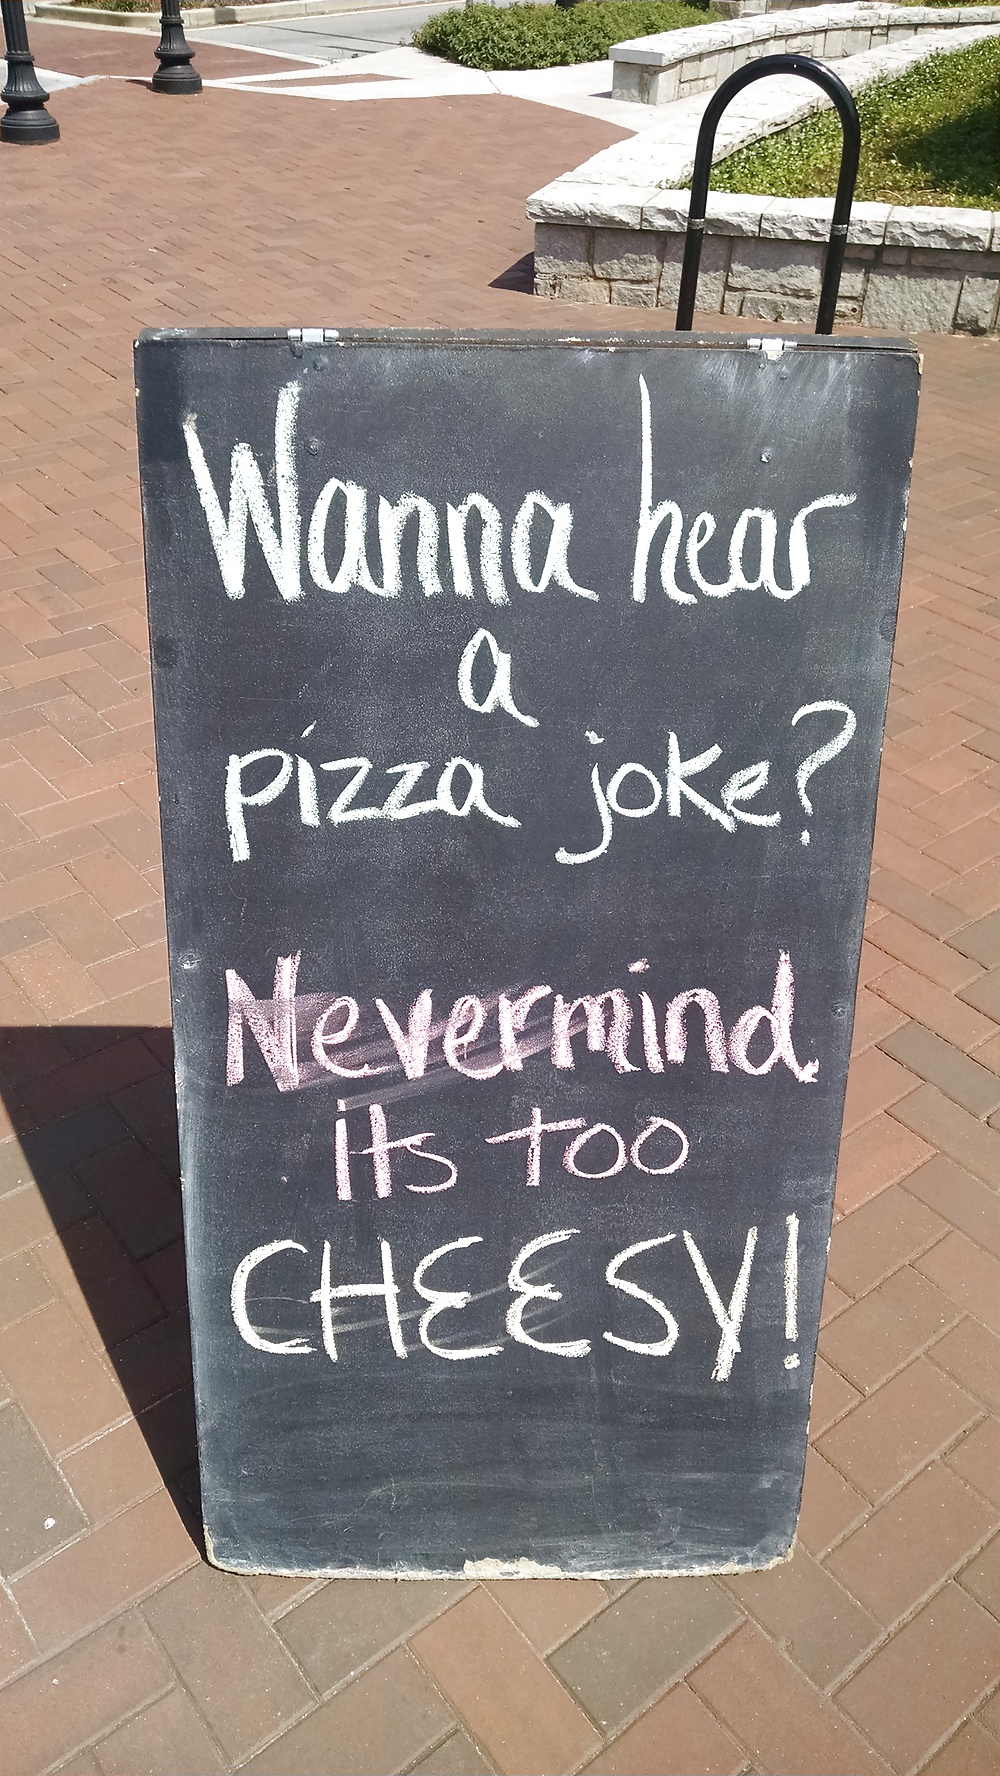 Wanna hear
a
pizza joke?
Nevermind
its too
CHEESY!